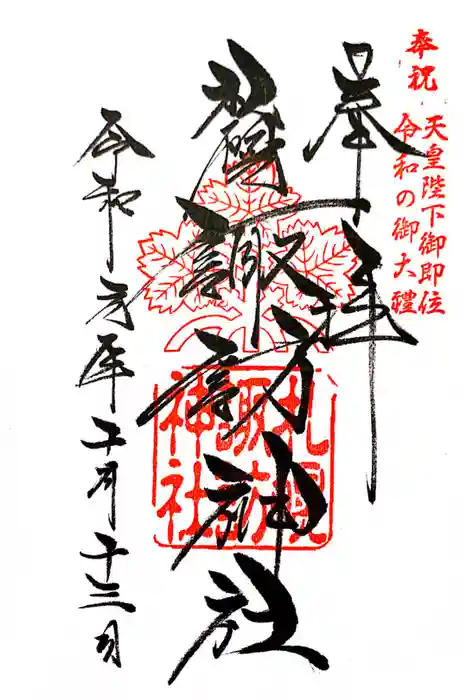 奉祝
天皇陛下御即位
令和の御大禮
奉拝
札幌諏訪神社
札幌
諏訪
神社
令和元年五月十三日